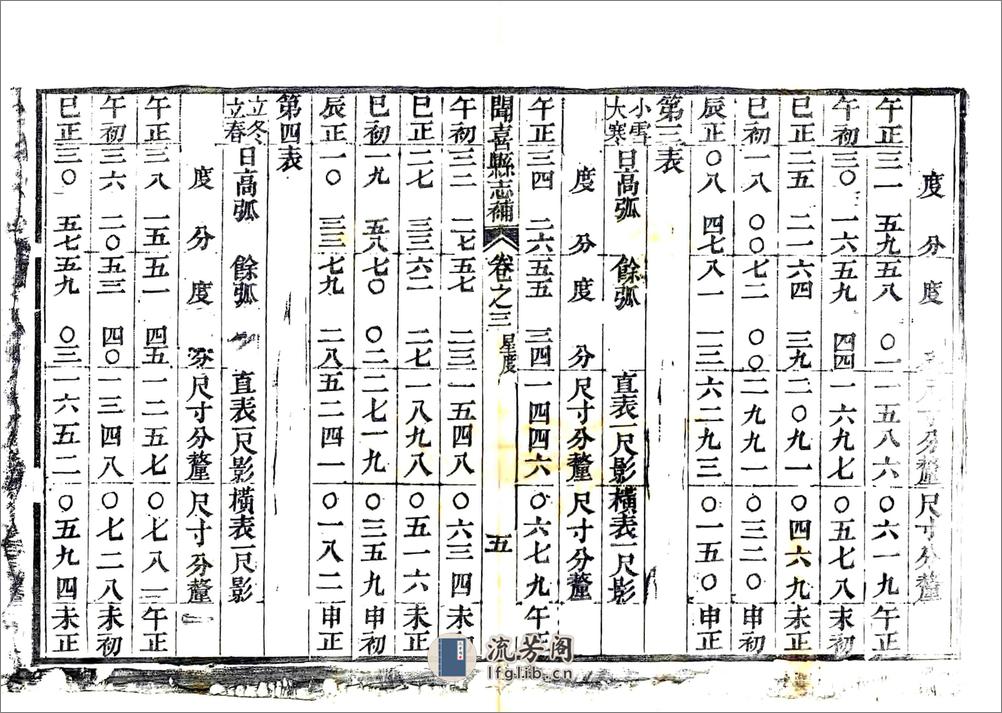 度分度 尺寸分釐尺寸分釐
午正三一五九五八〇一一五八六〇六一九午正
午初三〇一六五九四四一六九七〇五七八未初
巳正二五二一六四三九二〇九一〇四六九未正
巳初一八〇〇七二〇〇二九九一〇三二〇申初
辰正〇八四七八一一三六二九三〇一五〇申正
第三表
小雪大寒日高弧 餘弧 直表一尺影橫表一尺影
度分度分尺寸分釐尺寸分釐
午正三四二六五五三四一四四六〇六七九午正
聞喜縣志補 卷之三 星度 五
午初三二二七五七二三一五四八〇六三四未初
巳正二七三三六二二七一八九八〇五一六未正
巳初一九五八七〇〇二二七一九〇三五九申初
辰正一〇三二七九二八五二四一〇一八二申正
第四表
立冬立春日高弧 餘弧 直表一尺影橫表一尺影
度分度分尺寸分釐尺寸分釐
午正三八一五五一四五一二五七〇七八二午正
午初三六二〇五三四〇一三四八〇七二八未初
巳正三〇五七五九〇三一六五二〇五九四未正
流芳阁
lfglib.cn